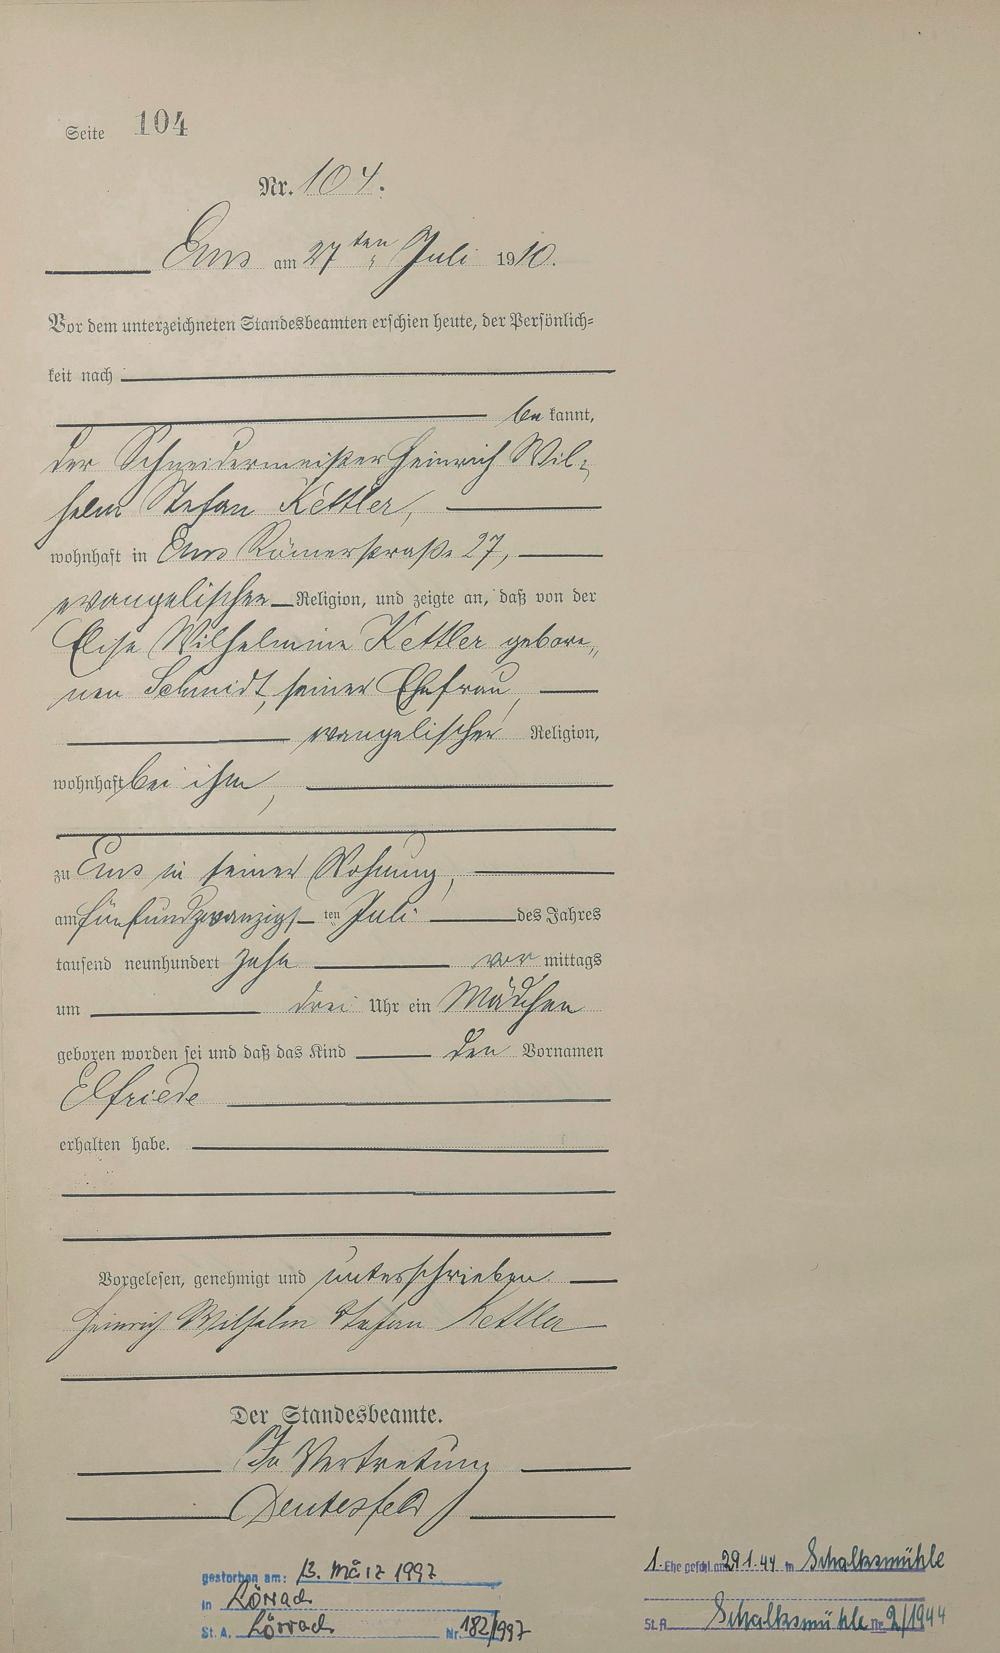 Seite 104
Nr. 104.
Ems am 27ten Juli 1910.
Vor dem unterzeichneten Standesbeamten erschien heute, der Persönlich=
keit nach
be kannt,
der Schneidermeister Heinrich Wil=
helm Stefan Kettler,
wohnhaft in Ems Römerstraße 27,
evangelischer Religion, und zeigte an, daß von der
Elise Wilhelmine Kettler gebore„
nen Schmidt, seiner Ehefrau,
evangelischer Religion,
wohnhaft bei ihm,
zu Ems in seiner Wohnung,
am fünfundzwanzigs ten Juli des Jahres
tausend neunhundert zehn vor mittags
um drei Uhr ein Mädchen
geboren worden sei und daß das Kind den Vornamen
Elfriede
erhalten habe.
Vorgelesen, genehmigt und unterschrieben.
Heinrich Wilhelm Stefan Kettler
Der Standesbeamte.
In Vertretung
gestorben am: 13. März 1997
in Lörrach
St. A. Lörrach Nr. 182/1997
1. Ehe geschl. am 29.1.44 in Schalksmühle
St. A. Schalksmühle Nr. 2/1944